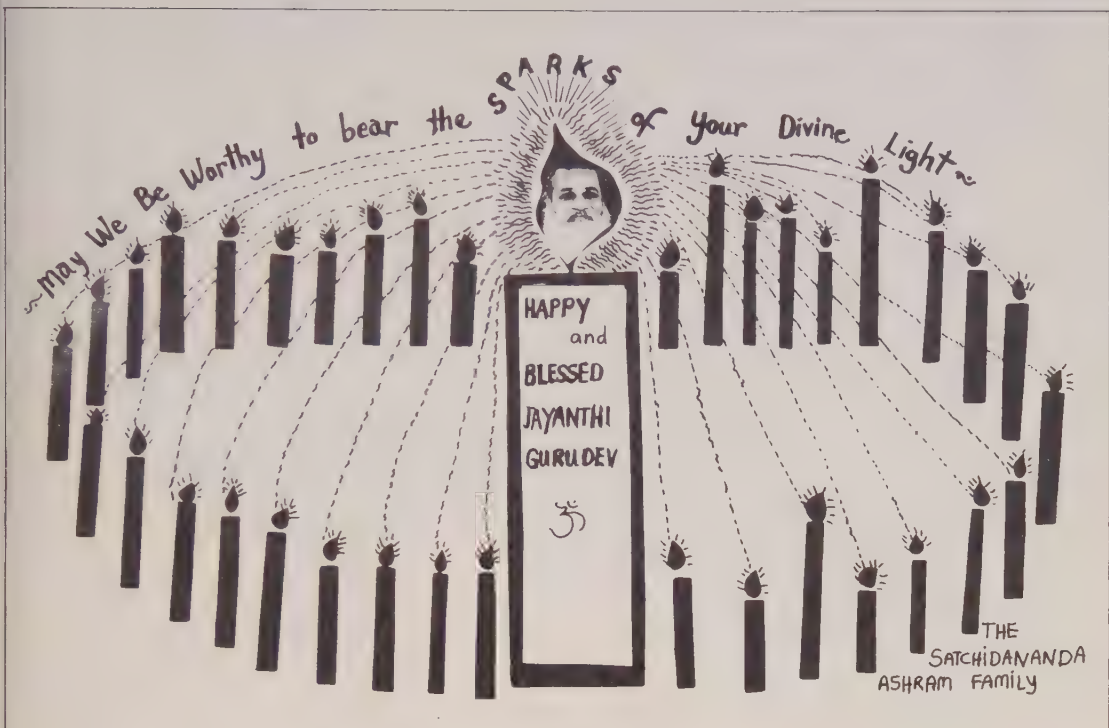 ~May We Be Worthy to bear the SPARKS of Your Divine Light~
HAPPY
and
BLESSED
JAYANTHI
GURUDEV
ॐ
THE
SATCHIDANANDA
ASHRAM FAMILY